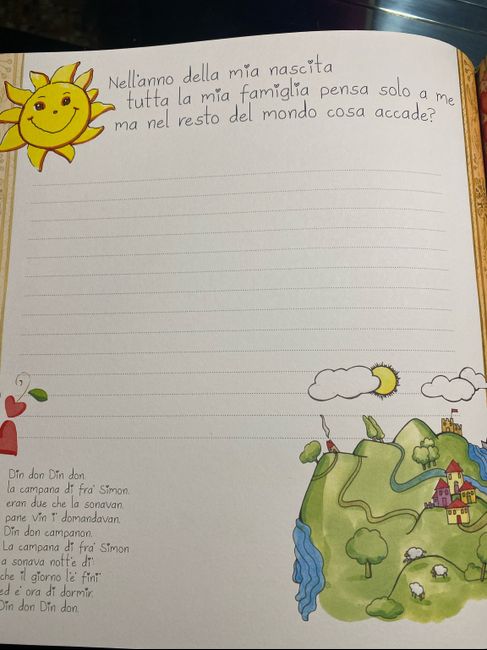 Nell'anno della mia nascita
tutta la mia famiglia pensa solo a me
ma nel resto del mondo cosa accade?
Din don Din don.
la campana di fra' Simon.
eran due che la sonavan.
pane vin i' domandavan.
Din don campanon.
La campana di fra' Simon
a sonava nott'e di'
che il giorno l'è' fini'
ed e' ora di dormir.
Din don Din don.